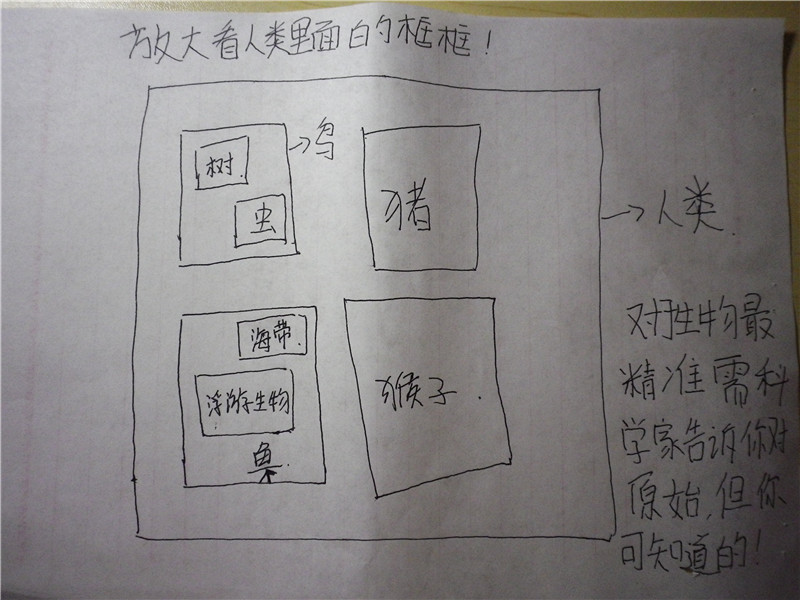 放大看人类里面白的框框!
树
→鸟
虫
猪
→人类
海带
浮游生物
鱼
猴子
对生物最
精准需科
学家告诉你对
原始,但你
可知道的!